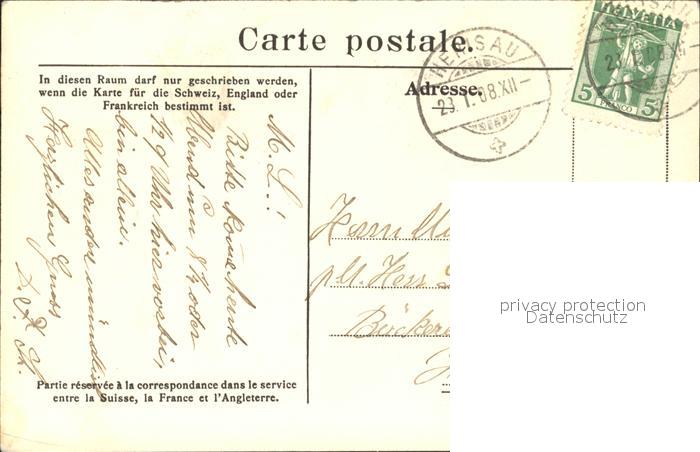 Carte postale.
In diesen Raum darf nur geschrieben werden,
wenn die Karte für die Schweiz, England oder
Frankreich bestimmt ist.
Adresse.
HERISAU
23.I.08.XII-
HELVETIA
5 FRANCO 5
M. L.!
Bitte komme heute
Abend um 8 ½ oder
12 9 Uhr hier vorbei,
bin allein.
Alles andere mündlich
Herzlichen Gruss
Herrn
p. Adr. Herr
Bäckerei
Partie réservée à la correspondance dans le service
entre la Suisse, la France et l'Angleterre.
privacy protection
Datenschutz